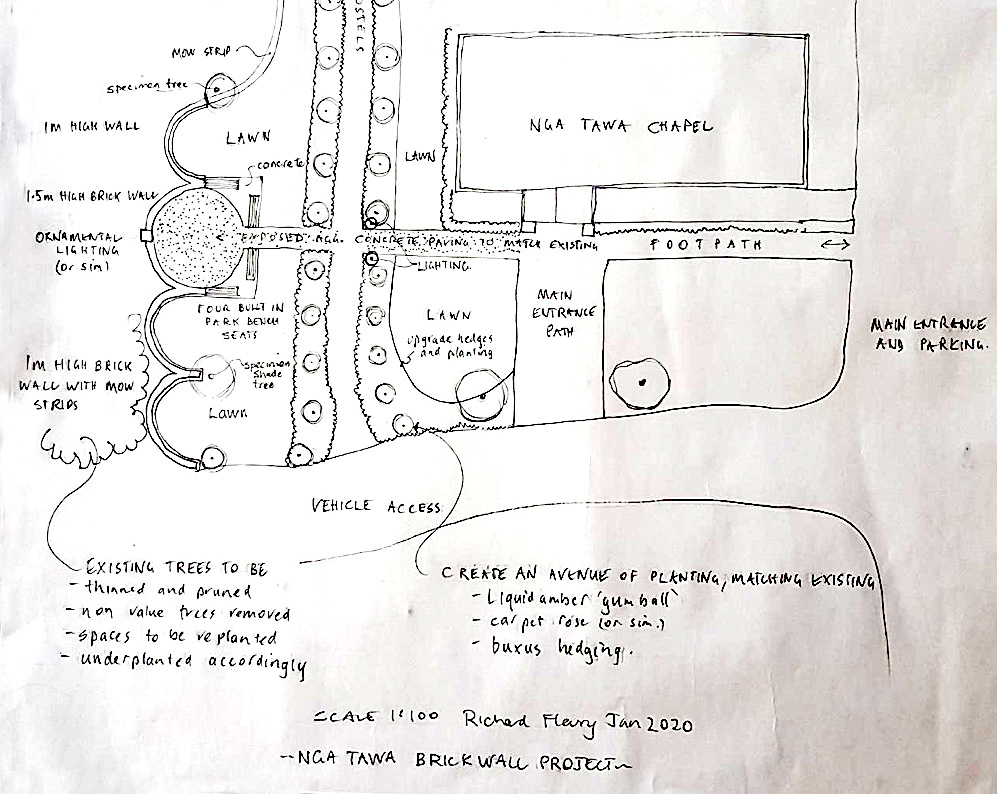 OSTELS
MOW STRIP
specimen tree
1M HIGH WALL
LAWN
concrete
LAWN
NGA TAWA CHAPEL
1.5m HIGH BRICK WALL
ORNAMENTAL
LIGHTING
(or sim)
< EXPOSED AGG. CONCRETE PAVING TO MATCH EXISTING
FOOTPATH
LIGHTING
FOUR BUILT IN
PARK BENCH
SEATS
LAWN
upgrade hedges
and planting
MAIN
ENTRANCE
PATH
MAIN ENTRANCE
AND PARKING.
1M HIGH BRICK
WALL WITH MOW
STRIPS
specimen
shade
tree
Lawn
VEHICLE ACCESS
EXISTING TREES TO BE
- thinned and pruned
- non value trees removed
- spaces to be replanted
- underplanted accordingly
CREATE AN AVENUE OF PLANTING, MATCHING EXISTING
- Liquid amber 'gumball'
- carpet rose (or sim.)
- buxus hedging.
SCALE 1:100 Richard Fleury Jan 2020
--NGA TAWA BRICKWALL PROJECT~